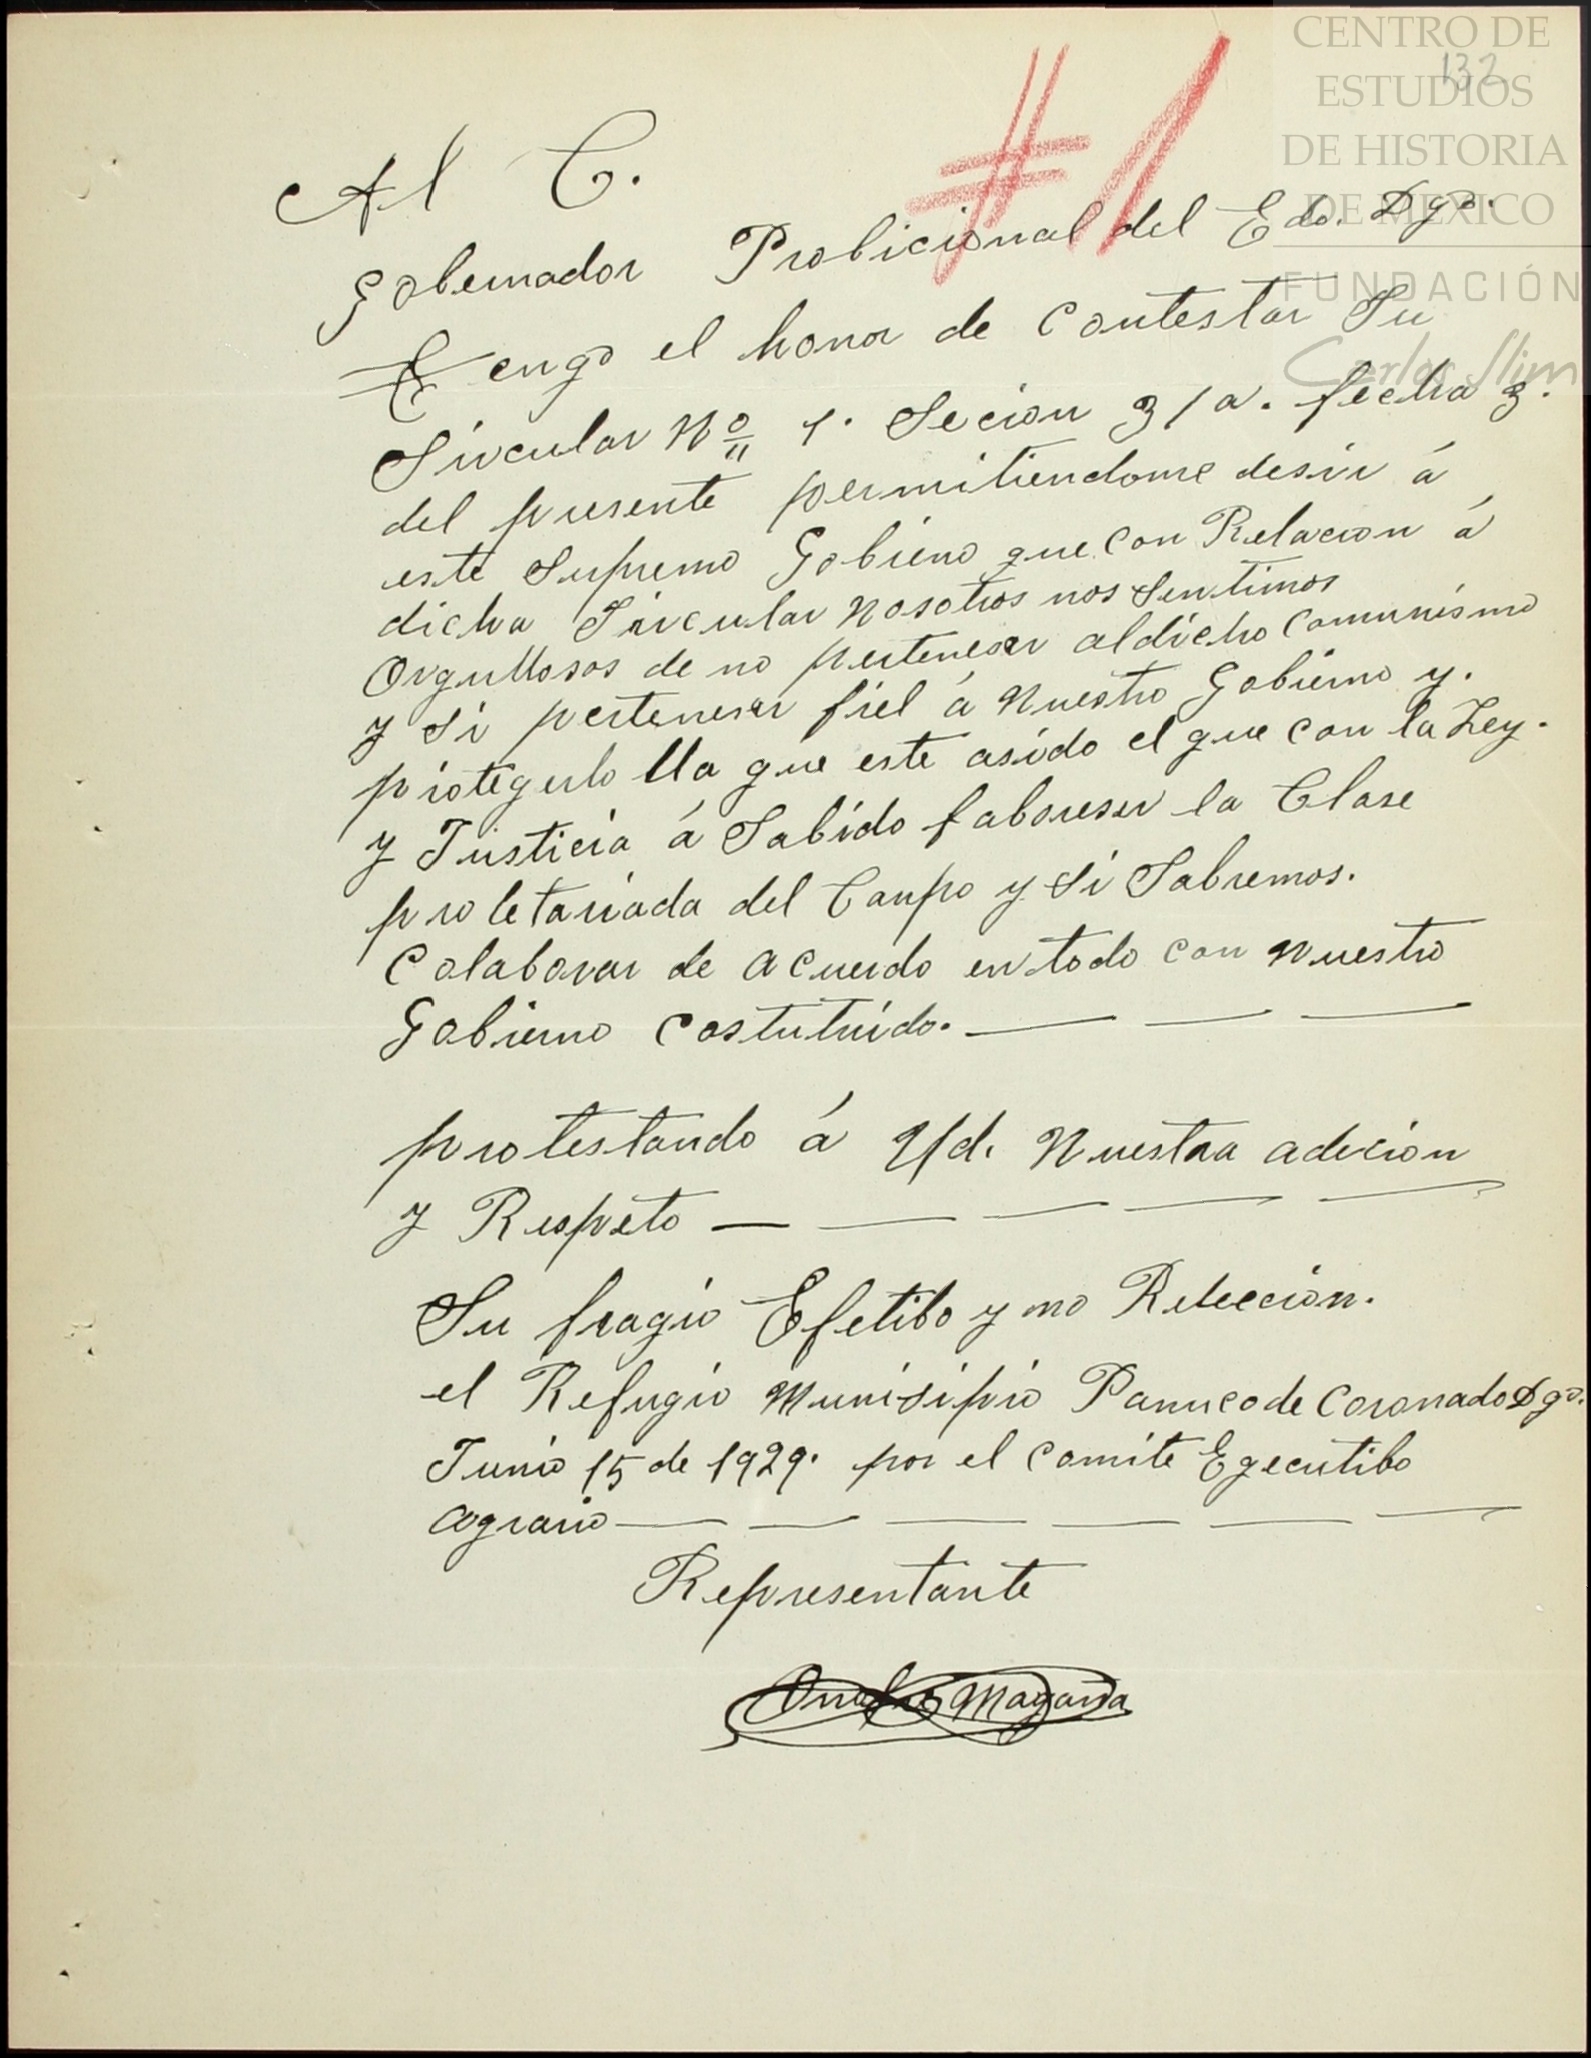 CENTRO DE
ESTUDIOS
DE HISTORIA
DE MEXICO
FUNDACIÓN
Carlos Slim
132
# 1
Al C.
Gobernador Probicional del Edo. Dgo.
Tengo el honor de Contestar Su
Sircular No 1. Secion 3/a. fecha 3.
del presente permitiendome desir á
este Supremo Gobierno que Con Relacion á
dicha Sircular Nosotros nos Sentimos
Orgullosos de no perteneser aldicho Comunismo
y Si perteneser fiel á Nuestro Gobierno y.
protegerlo lla que este asido el que con la Ley.
y Justicia á Sabido faboreser la Clase
proletariada del Canpo y Si Sabremos.
Colaborar de acuerdo en todo con Nuestro
Gobierno Costutuido.
protestando á Ud. Nuestra adicion
y Respeto
Su fragio Efetibo y no Releccion.
el Refugio Munisipio Panuco de Coronado Dgo.
Junio 15 de 1929. por el Comite Egecutibo
agrario
Representante
Onofre Magaña